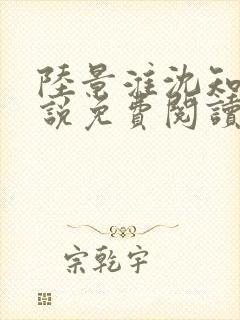 陸景淮沈知
說免費閱讀
宗乾宇